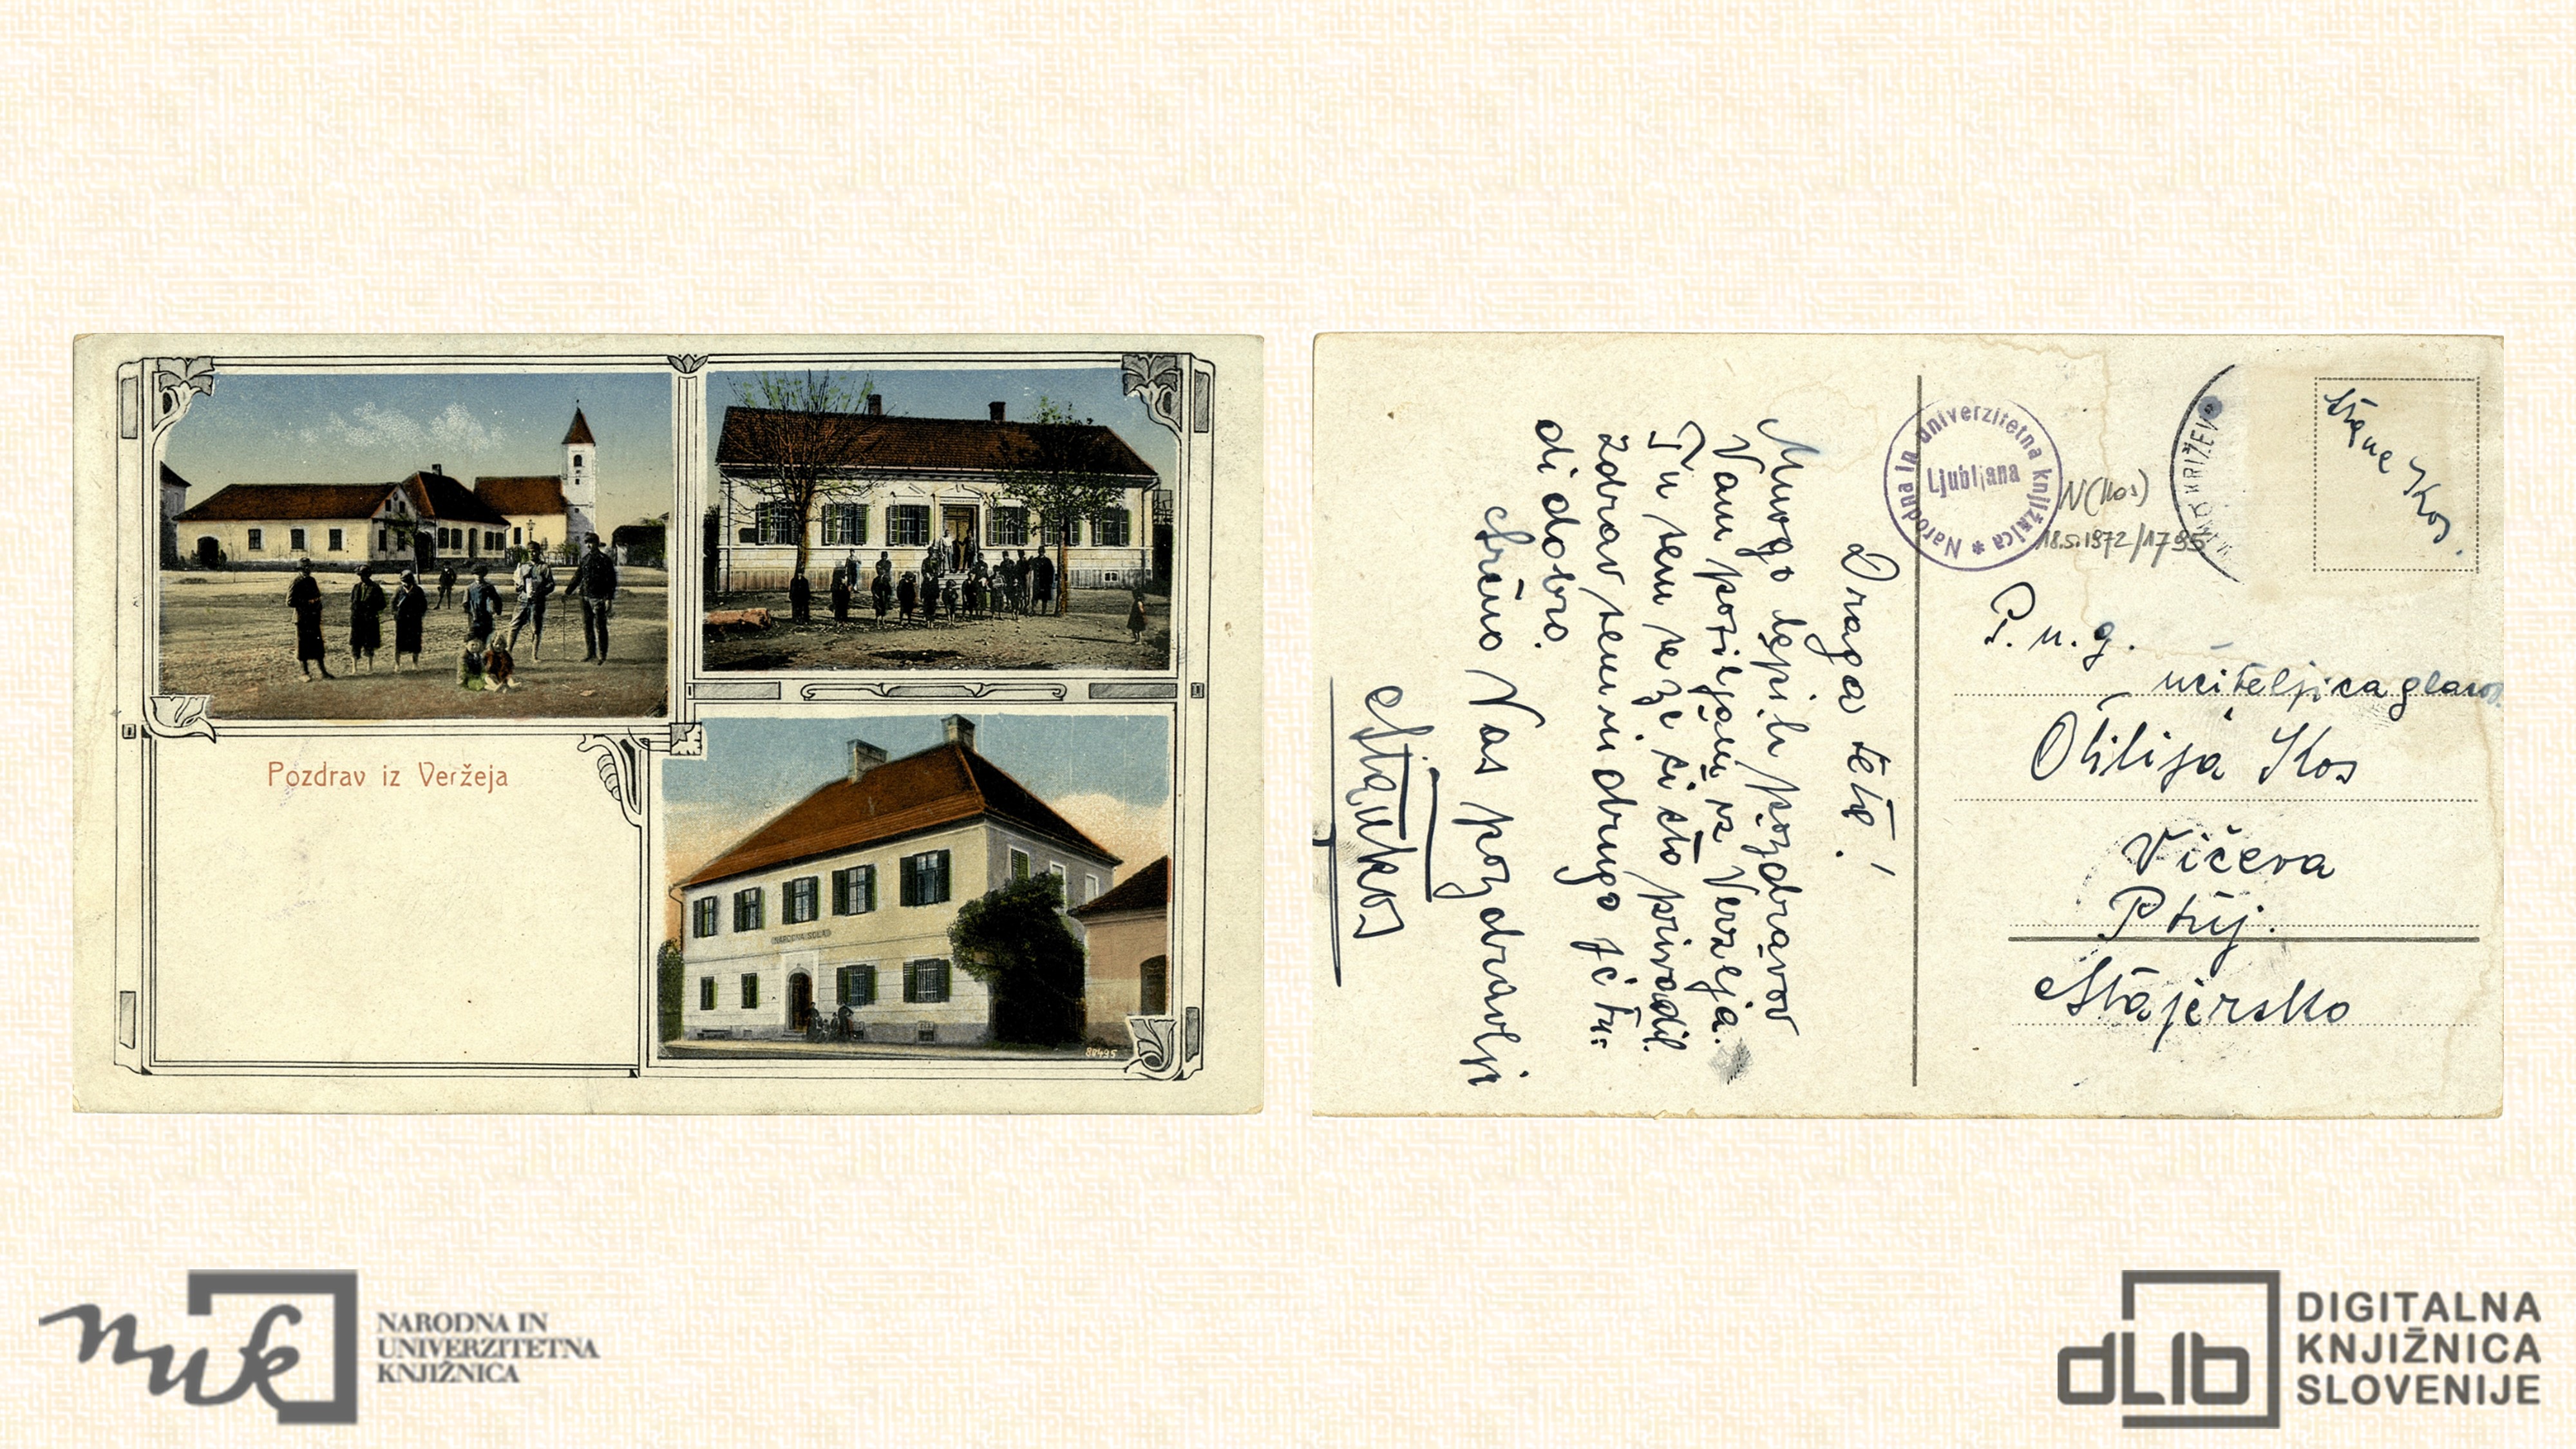 Pozdrav iz Veržeja
NARODNA ŠOLA
80495
Draga teta!
Mnogo lepih pozdravov
Vam pošiljam iz Veržeja.
Tu sem se že čisto privadil.
Zdrav sem in drugo je tu-
di dobro.
Srčno Vas pozdravlja
Stanko
Narodna in univerzitetna knjižnica *
Ljubljana
N(Kos)
18.5.1972/1795
KRIŽEV
Stane Kos.
P. n. g.
učiteljica glasov.
Otilija Kos
Vičava
Ptuj.
Štajersko
nuk
NARODNA IN
UNIVERZITETNA
KNJIŽNICA
dLib
DIGITALNA
KNJIŽNICA
SLOVENIJE